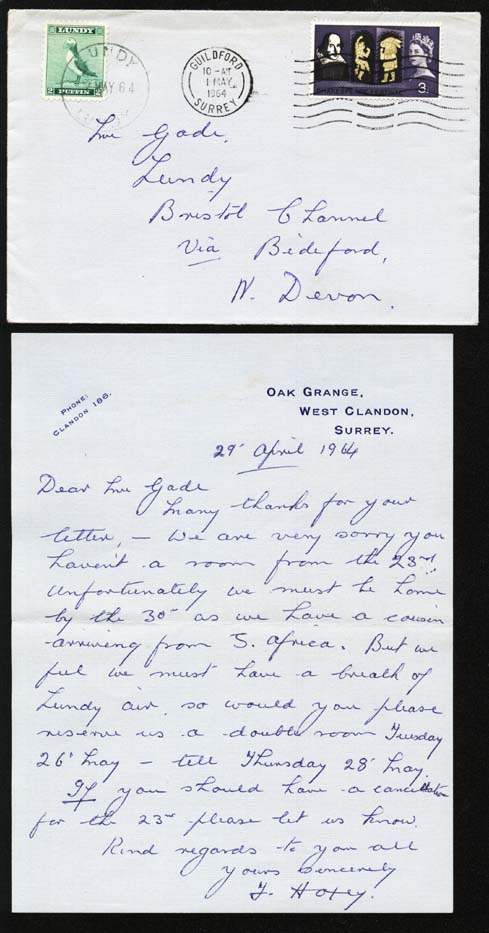 LUNDY
2 PUFFIN 2
LUNDY
MAY 64
GUILDFORD
10-AM
1 MAY
1964
SURREY
SHAKESPEARE FESTIVAL
3D
Mr Gade,
Lundy
Bristol Channel
Via Bideford,
N. Devon.
PHONE:
CLANDON 186.
OAK GRANGE,
WEST CLANDON,
SURREY.
29 April 1964
Dear Mr Gade
Many thanks for your
letter, - We are very sorry you
haven't a room from the 23rd.
Unfortunately we must be home
by the 30 as we have a cousin
arriving from S. Africa. But we
feel we must have a breath of
Lundy air, so would you please
reserve us a double room Tuesday
26 May - till Thursday 28 May.
If you should have a cancellation
for the 23rd please let us know.
Kind regards to you all
Yours sincerely